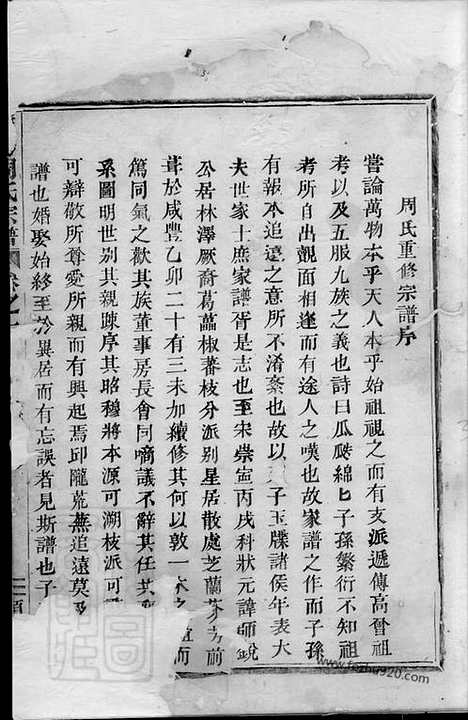 周氏重修宗譜序
嘗論萬物本乎天人本乎始祖視之而有支派遞傳高曾祖
考以及五服九族之義也詩曰瓜瓞綿匕子孫繁衍不知祖
考所自出覿面相逢而有途人之嘆也故家譜之作而子孫
有報本追遠之意所不淆紊也故以子玉牒諸侯年表大
夫世家士庶家譜胥是志也至宋崇寍丙戌科狀元諱師銳
公居林澤厥裔葛藟椒蕃枝分派別星居散處芝蘭前
葺於咸豐乙卯二十有三未加續修其何以敦一本之誼而
篤同氣之歡其族董事房長會同啇議不辭其任其
系圖明世別其親踈序其昭穆將本源可溯枝派可
可辯敬所尊愛所親而有興起焉邱隴荒蕪追遠莫
譜也婚娶始終至於異居而有忘誤者見斯譜也子
周氏宗譜 卷之一
www.fezhu920.com